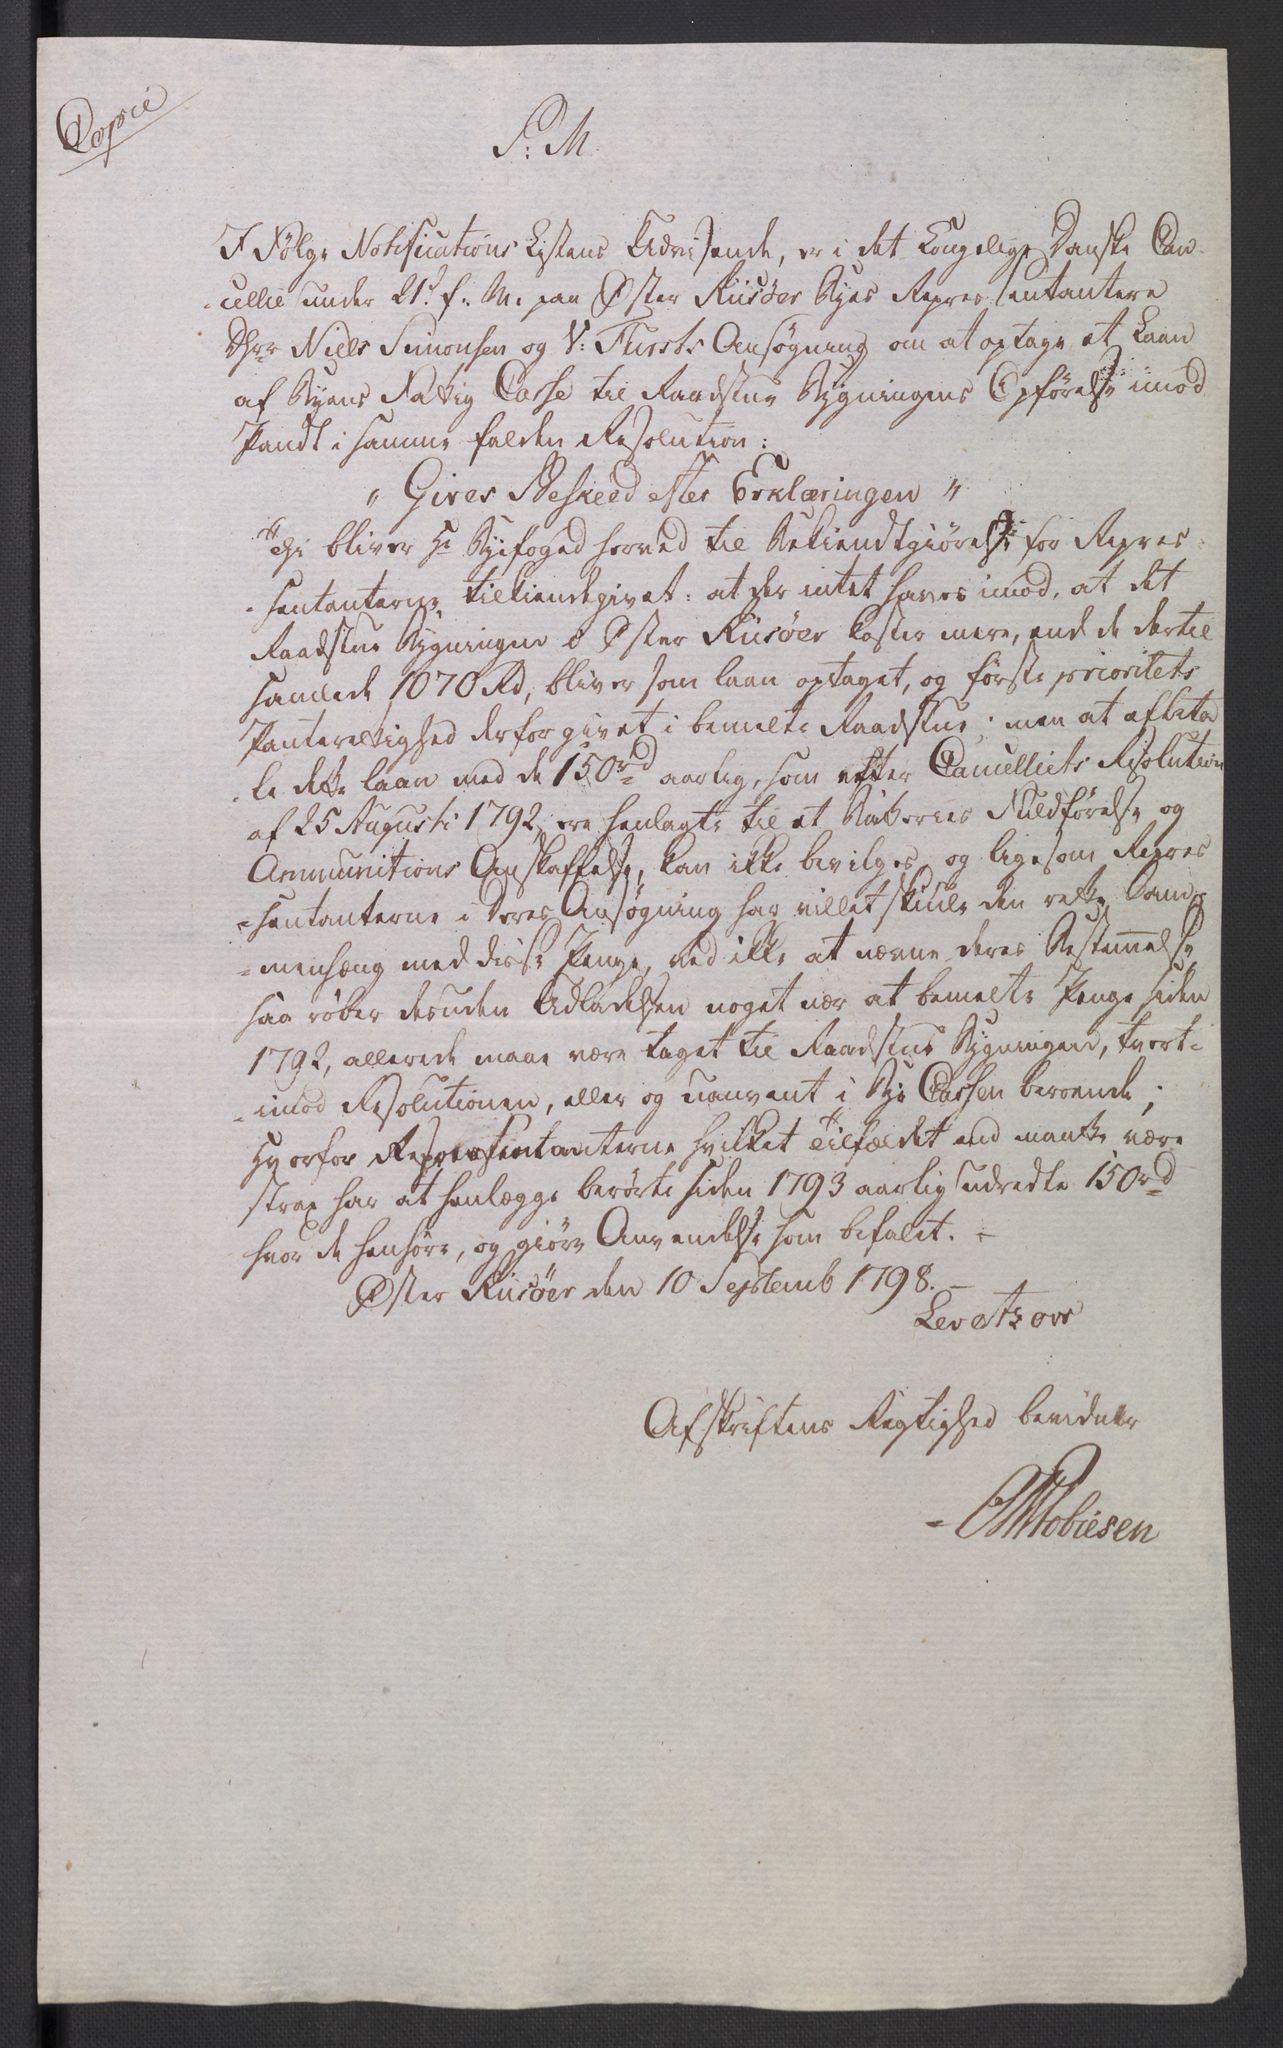 Copie
P: M.
I Følge Notifications Listens Udvisende, er i det Kongelige Danske Can-
cellie under 21de f: M: paa Øster Riisøer Byes Repres sentantere
Dhrr Niels Simonsen og V: Fursts Ansøgning om at optage et Laan
af Byens Fattig Casse til Raadstue Bygningens Opførelse imod
Pandt i samme falden Resolution:
" Gives Beskeed efter Erklæringen "
Thi bliver Hr Byefoged herved til Bekiendtgiørelse for Repres-
-sentanterne tilkiendegivet: at der intet haves imod, at det
Raadstue Bygningen i Øster Riisøer koster mere, end de dertil
samlede 1070 Rd, bliver som laan optaget, og første prioritets
Panterettighed derfor givet i bemelte Raadstue; men at afbeta
-le dette laan med de 150rd aarlig, som efter Cancelliets Resolution
af 25 Augusti 1792, ere henlagte til et Batteries Fuldførelse og
Ammunitions Anskaffelse, kan ikke bevilges, og ligesom Repres
-sentanterne i deres Ansøgning har villet skiule den rette Sam-
-menhæng med disse Penge, ved ikke at nævne deres Bestemmelse
saa røber desuden Udladelsen noget nær at bemelte Penge siden
1792, allerede maae være taget til Raadstue Bygningen, tvert-
-imod Resolutionen, eller og uanvent i Bye Cassen beroende;
Hvorfor Representanterne hvilket Tilfældet end maatte være
strax har at henlægge berørte siden 1793 aarlig udredte 150rd
hvor de henhøre, og giøre Anvendelse som befalet.
Øster Riisøer den 10 Septemb 1798.
Levetzow
Afskriftens Rigtighed bevidner
Tobiesen